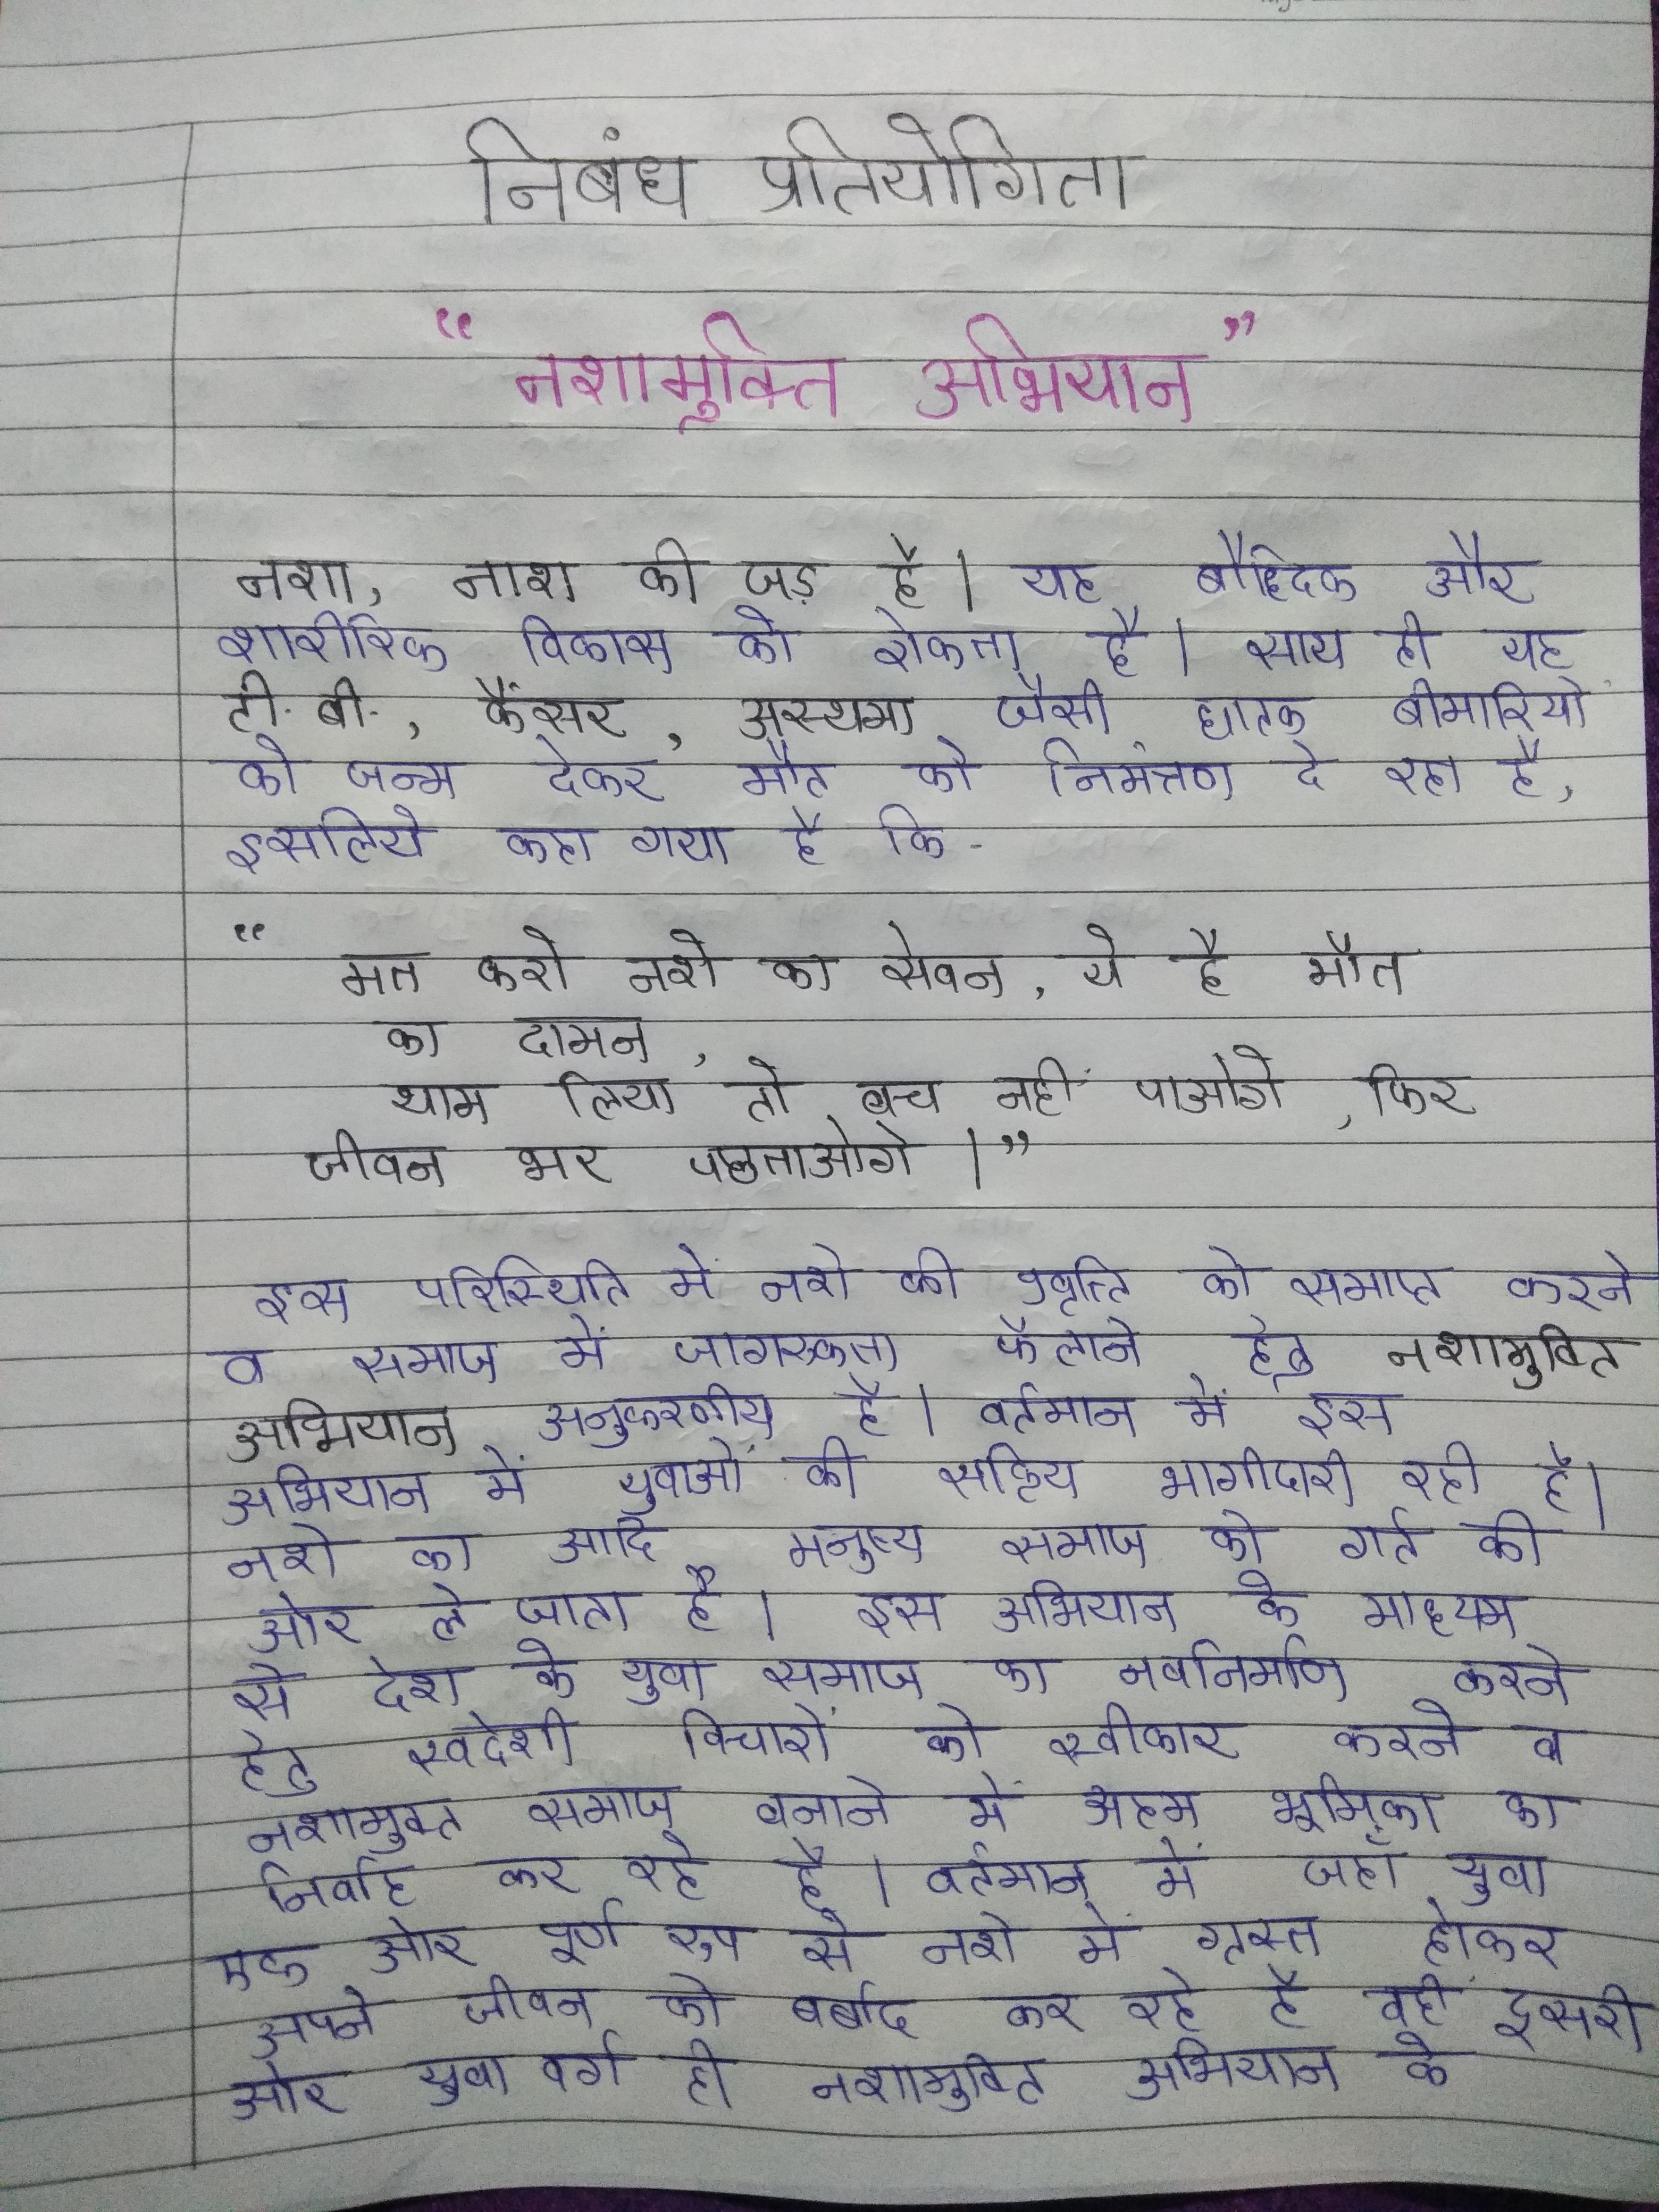 निबंध प्रतियोगिता
“नशामुक्ति अभियान”
नशा, नाश की जड़ है। यह बौद्धिक और
शारीरिक विकास को रोकता है। साथ ही यह
टी.बी., कैंसर, अस्थमा जैसी घातक बीमारियों
को जन्म देकर मौत को निमंत्रण दे रहा है,
इसलिये कहा गया है कि-
“मत करो नशे का सेवन, ये है मौत
का दामन,
थाम लिया तो बच नहीं पाओगे, फिर
जीवन भर पछताओगे।”
इस परिस्थिति में नशे की प्रवृत्ति को समाप्त करने
व समाज में जागरुकता फैलाने हेतु नशामुक्ति
अभियान अनुकरणीय है। वर्तमान में इस
अभियान में युवाओं की सक्रिय भागीदारी रही है।
नशे का आदि मनुष्य समाज को गर्त की
ओर ले जाता है। इस अभियान के माध्यम
से देश के युवा समाज का नवनिर्माण करने
हेतु स्वदेशी विचारों को स्वीकार करने व
नशामुक्त समाज बनाने में अहम भूमिका का
निर्वाह कर रहे है। वर्तमान में जहाँ युवा
एक ओर पूर्ण रुप से नशे में ग्रस्त होकर
अपने जीवन को बर्बाद कर रहे है वहीं दूसरी
ओर युवा वर्ग ही नशामुक्ति अभियान के